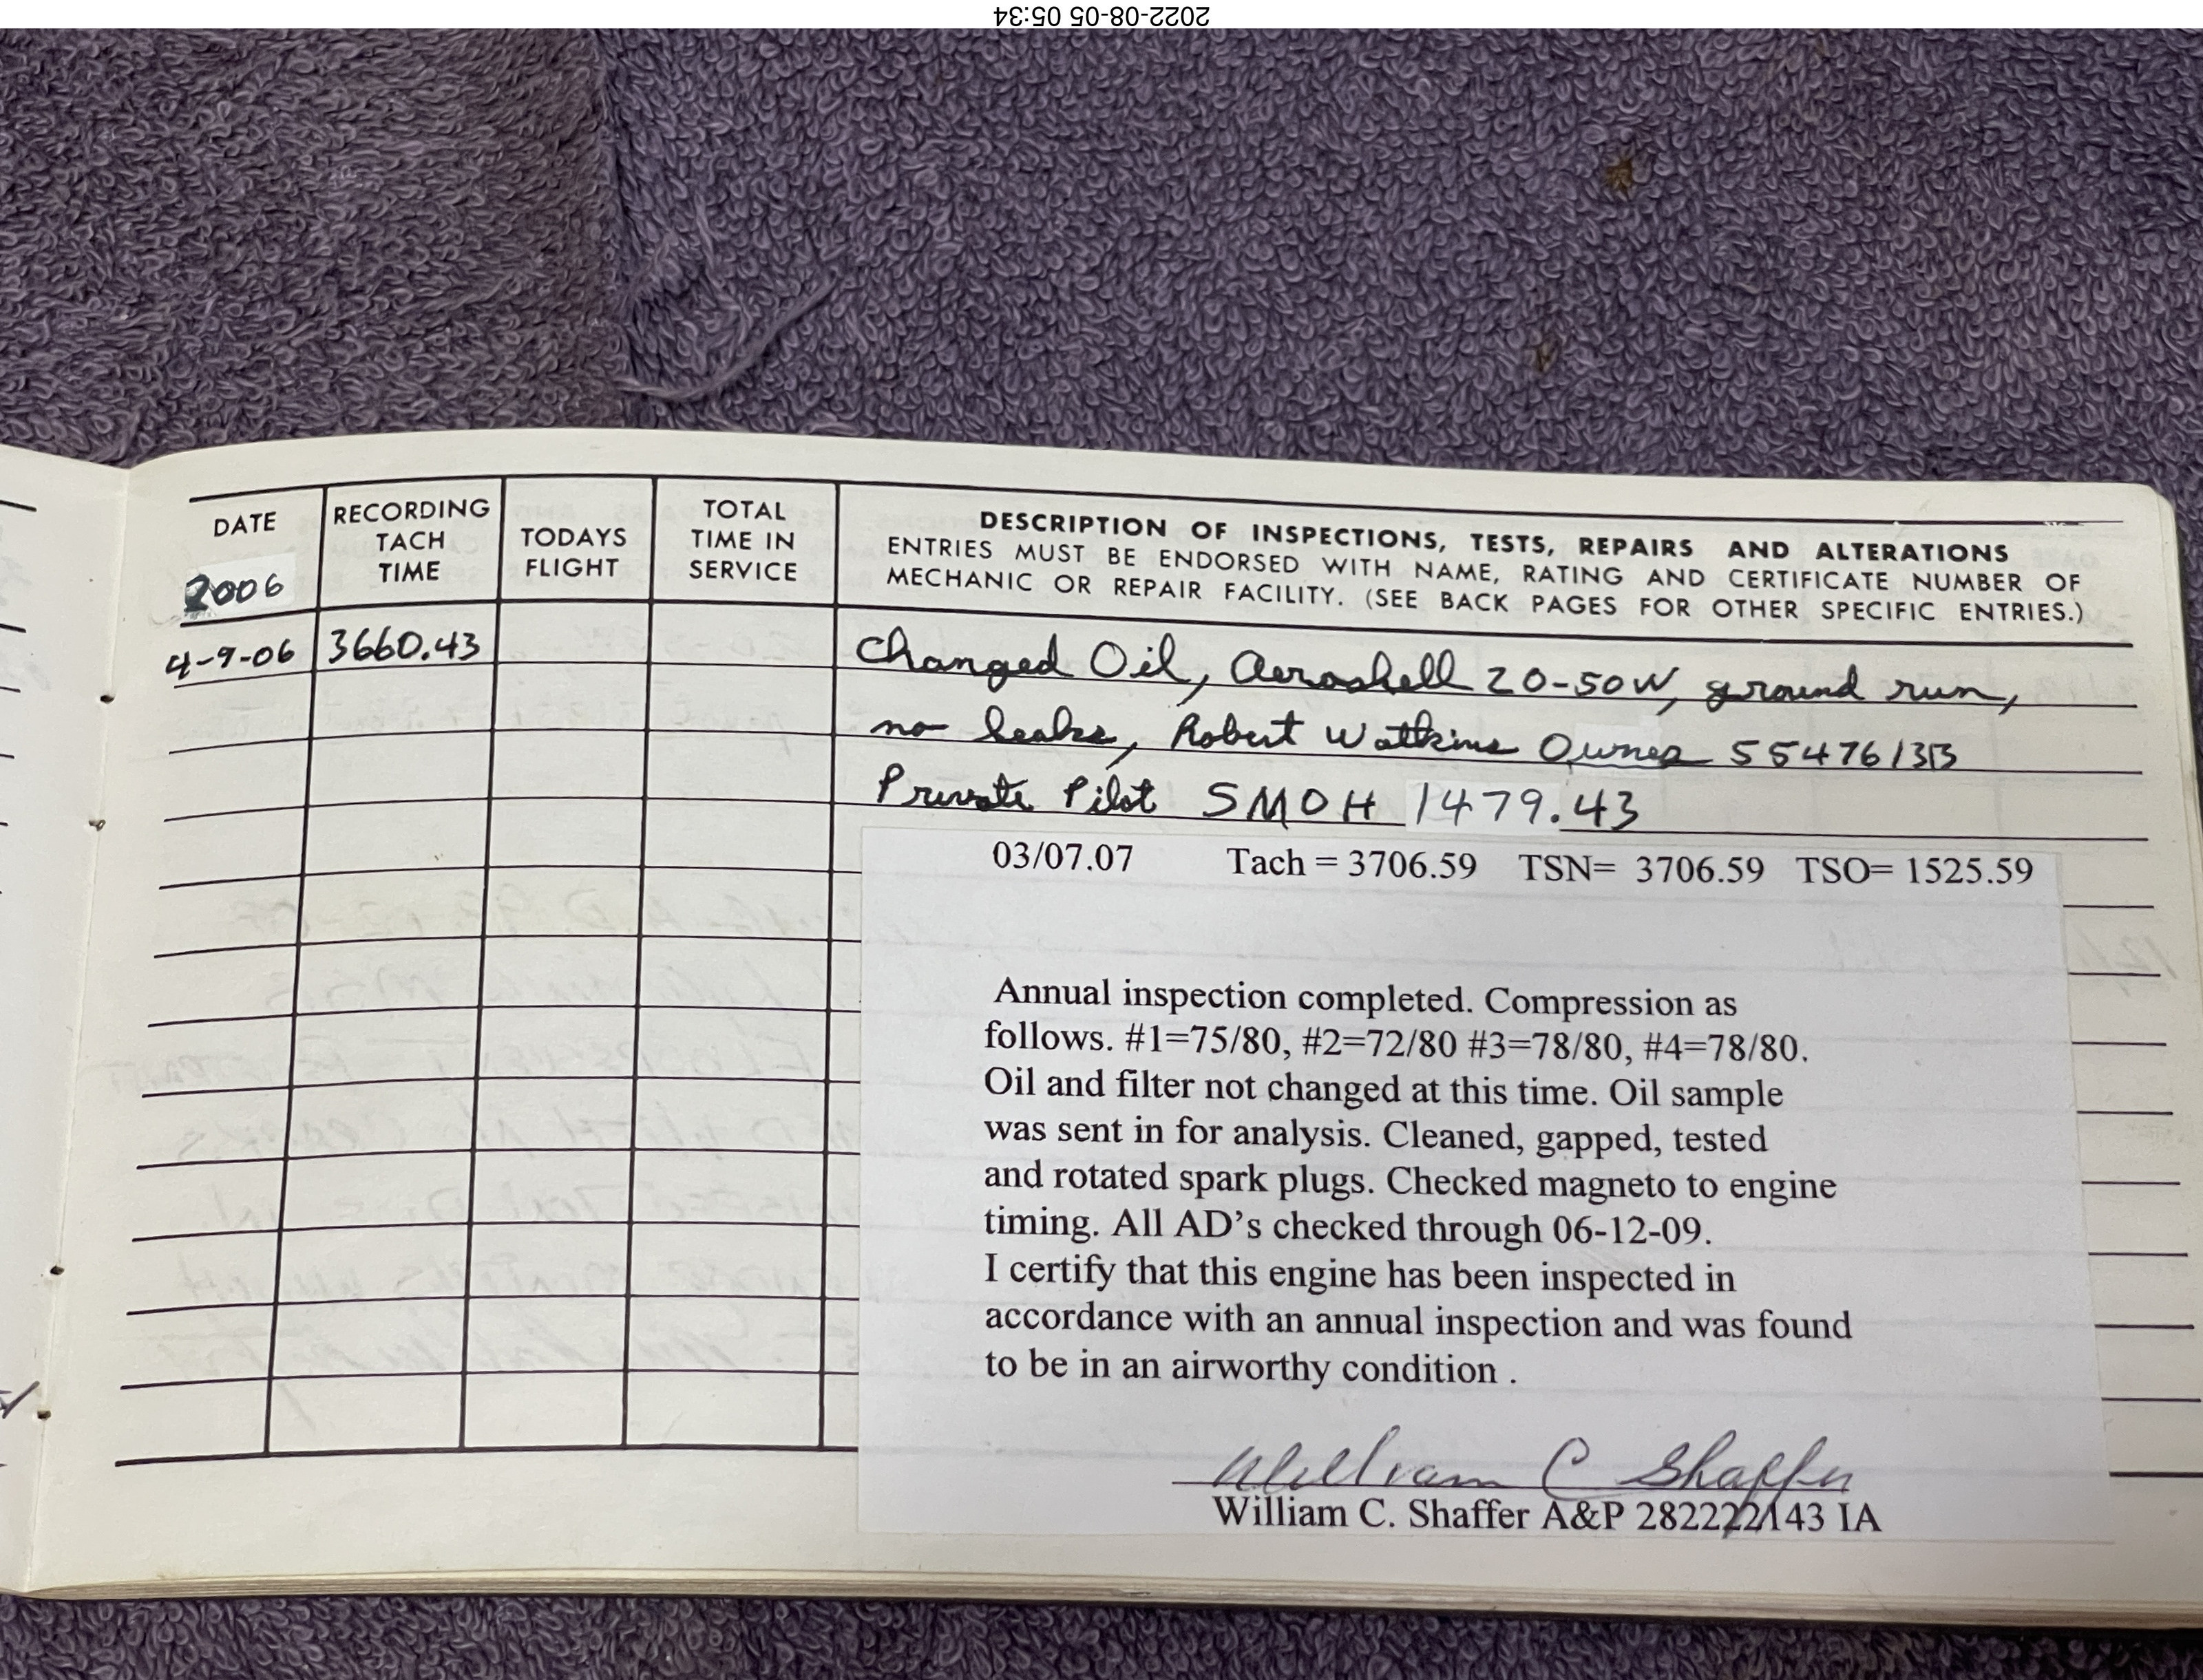 2022-08-05 05:34
DATE
2006
RECORDING
TACH
TIME
TODAYS
FLIGHT
TOTAL
TIME IN
SERVICE
DESCRIPTION OF INSPECTIONS, TESTS, REPAIRS AND ALTERATIONS
ENTRIES MUST BE ENDORSED WITH NAME, RATING AND CERTIFICATE NUMBER OF
MECHANIC OR REPAIR FACILITY. (SEE BACK PAGES FOR OTHER SPECIFIC ENTRIES.)
4-9-06 3660.43 Changed Oil, Aeroshell 20-50W, ground run,
no leaks, Robert Watkins Owner
Private Pilot SMOH 1479.43
03/07.07 Tach = 3706.59 TSN= 3706.59 TSO= 1525.59
Annual inspection completed. Compression as
follows. #1=75/80, #2=72/80 #3=78/80, #4=78/80.
Oil and filter not changed at this time. Oil sample
was sent in for analysis. Cleaned, gapped, tested
and rotated spark plugs. Checked magneto to engine
timing. All AD's checked through 06-12-09.
I certify that this engine has been inspected in
accordance with an annual inspection and was found
to be in an airworthy condition .
William C Shaffer
William C. Shaffer A&P 282222143 IA